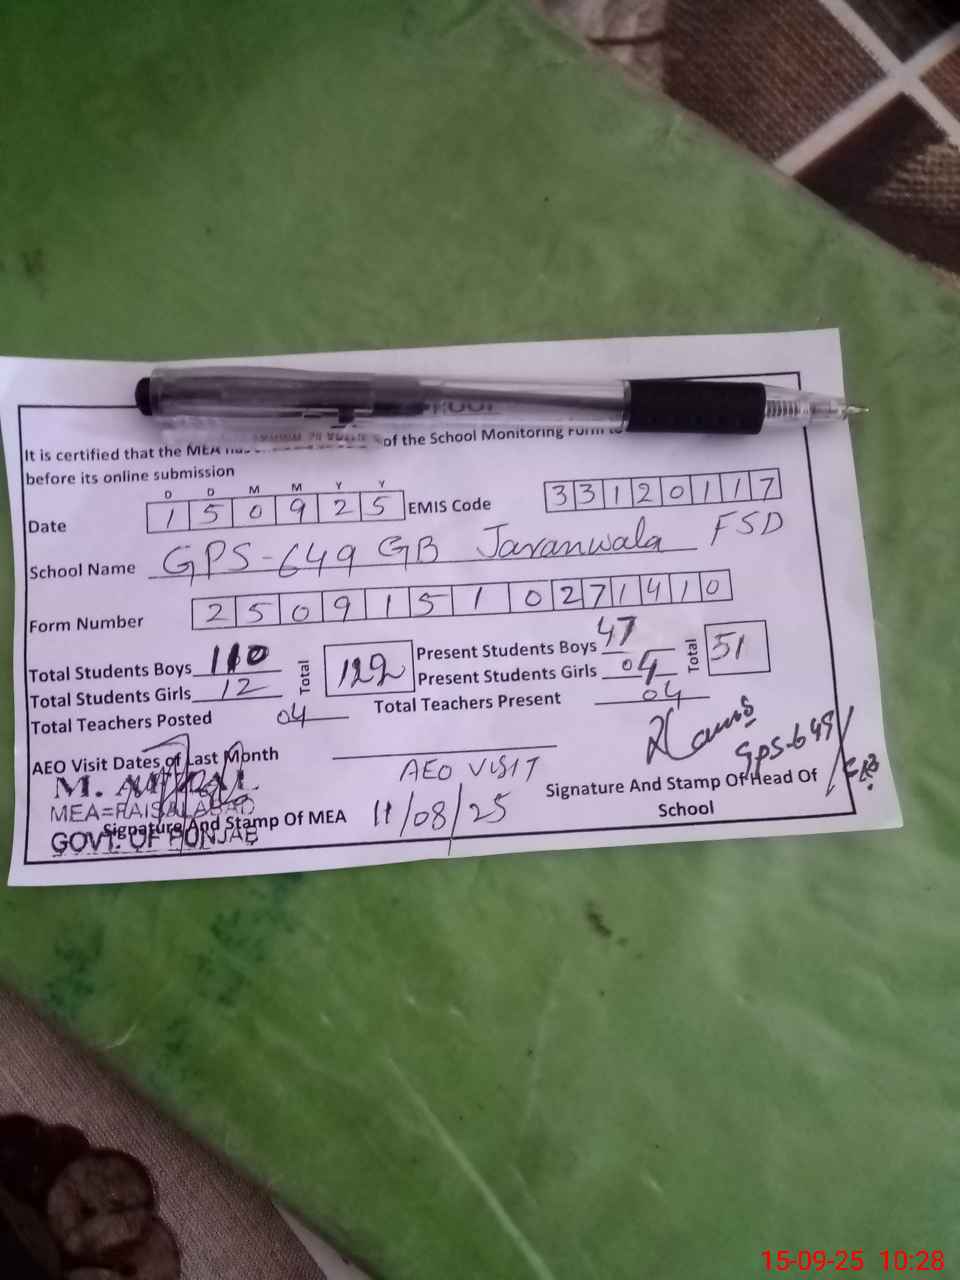 It is certified that the MEA of the School Monitoring Form to
before its online submission
D D M M Y Y
Date 1 5 0 9 2 5 EMIS Code 3 3 1 2 0 1 1 7
School Name GPS-649 GB Jaranwala FSD
Form Number 2 5 0 9 1 5 1 0 2 7 1 4 1 0
Total Students Boys 110 Total 122 Present Students Boys 47 Total 51
Total Students Girls 12 Present Students Girls 04
Total Teachers Posted 04 Total Teachers Present 04
GPS-649/
AEO Visit Dates of Last Month
AEO VISIT
11/08/25
MEA=FAISALABAD
GOVT. OF PUNJAB
Signature And Stamp Of MEA
Signature And Stamp Of Head Of
School
15-09-25 10:28